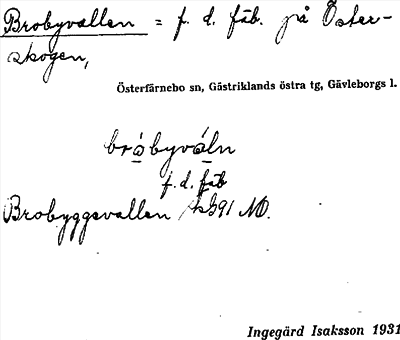 Brobyvallen = f. d. fäb. på Öster-
skogen,
Österfärnebo sn, Gästriklands östra tg, Gävleborgs l.
bròbyváln
f. d. fäb
Brobyggsvallen
Ingegärd Isaksson 1931